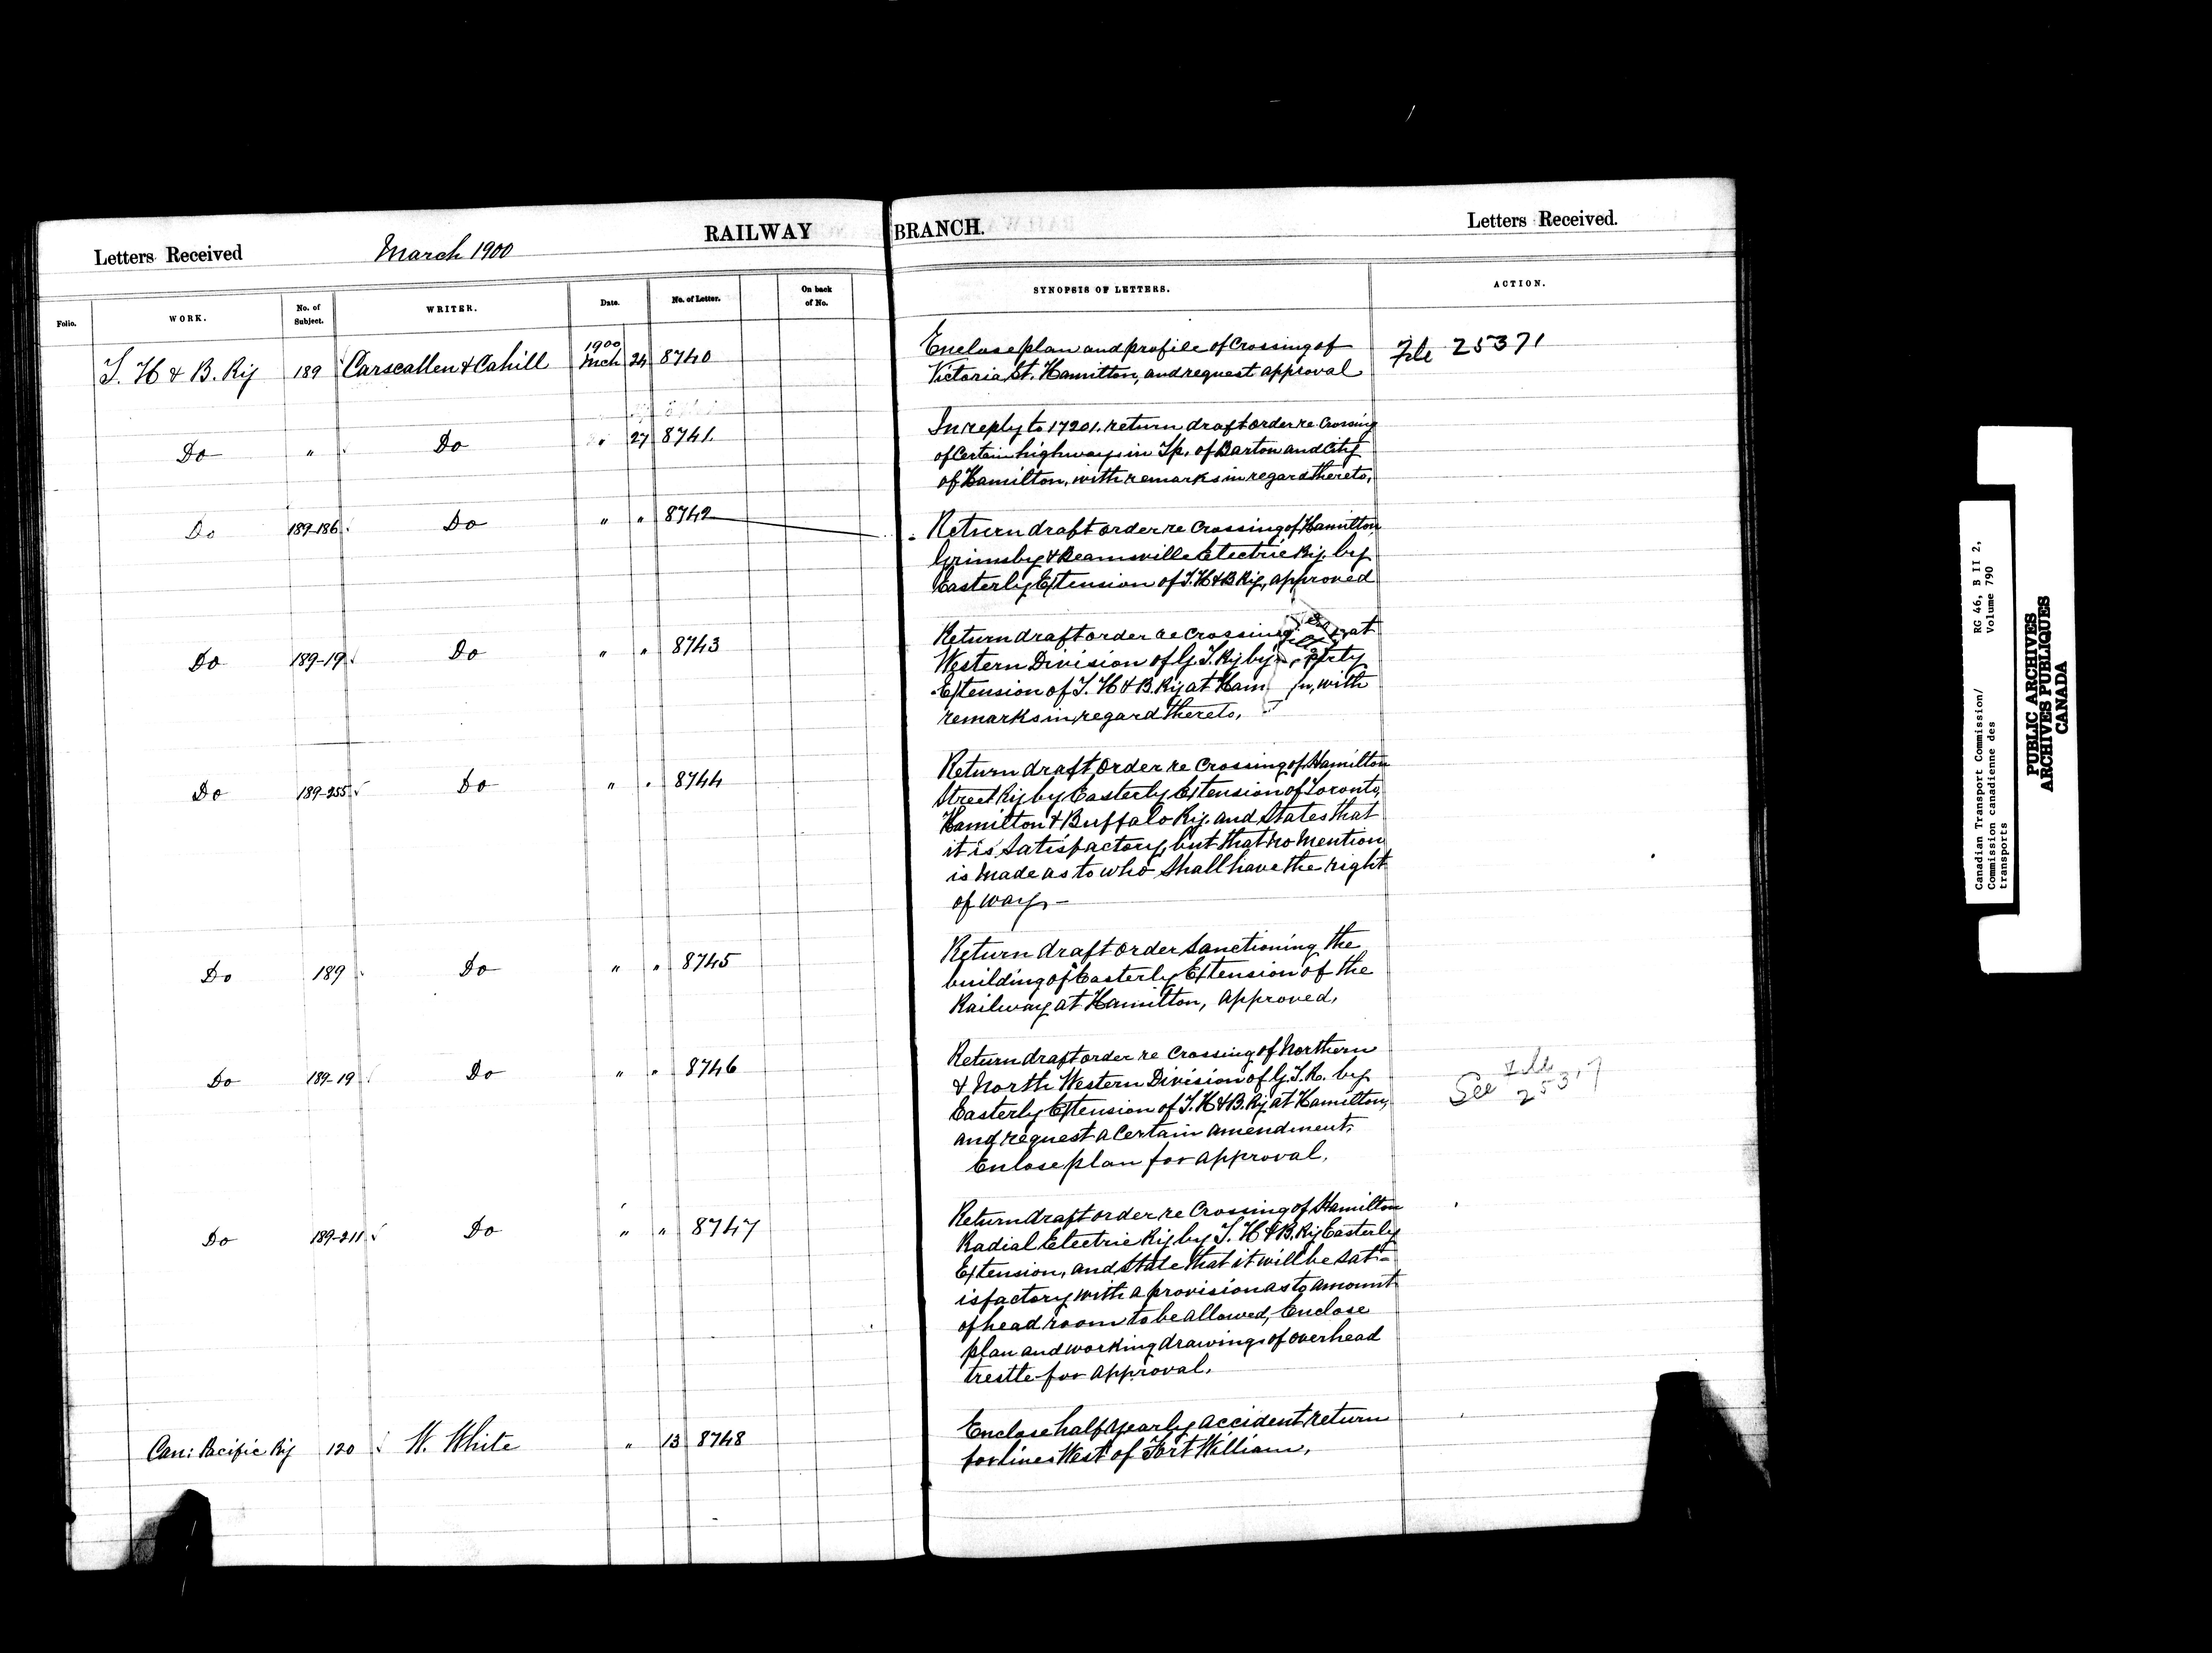 Letters Received
March 1900
RAILWAY BRANCH.
Letters Received.
Folio. WORK. No. of Subject. WRITER. Date. No. of Letter. On back of No. SYNOPSIS OF LETTERS. ACTION.
T. H & B. Ry 189 Carscallen & Cahill 1900 Mch 24 8740
Enclose plan and profile of Crossing of
Victoria St. Hamilton, and request approval
File 25371
Do " Do 27 8741
In reply to 17201. return draft order re Crossing
of Certain highways in Tp. of Barton and City
of Hamilton, with remarks in regard thereto,
Do 189-186 Do " " 8742
Return draft order re Crossing of Hamilton
Grimsby & Beamsville Electric Ry. by
Easterly Extension of T. H & B Ry, approved
Do 189-19 Do " " 8743
Return draft order re Crossing at
Western Division of G. T. Ry by
Extension of T. H & B. Ry at Ham with
remarks in regard thereto,
Do 189-255 Do " " 8744
Return draft Order re Crossing of Hamilton
Street Ry by Easterly Extension of Toronto,
Hamilton & Buffalo Ry. and States that
it is Satisfactory, but that no Mention
is Made as to who Shall have the right
of way, -
Do 189 Do " " 8745
Return draft order Sanctioning the
building of Easterly Extension of the
Railway at Hamilton, approved,
Do 189-19 Do " " 8746
Return draft order re Crossing of Northern
& North Western Division of G. T. R. by
Easterly Extension of T. H & B. Ry at Hamilton,
and request a Certain amendment.
Enlose plan for approval.
See File
Do 189-211 Do " " 8747
Return draft order re Crossing of Hamilton
Radial Electric Ry by T. H & B. Ry Easterly
Extension, and State that it will be Sat-
isfactory with a provision as to amount
of head room to be allowed, Enclose
plan and working drawings of overhead
trestle for approval.
Can: Pacific Ry 120 W. White " 13 8748
Enclose half yearly accident return
for lines West of Fort William,
Canadian Transport Commission/ RG 46, B II 2,
Commission canadienne des Volume 790
transports
PUBLIC ARCHIVES
ARCHIVES PUBLIQUES
CANADA